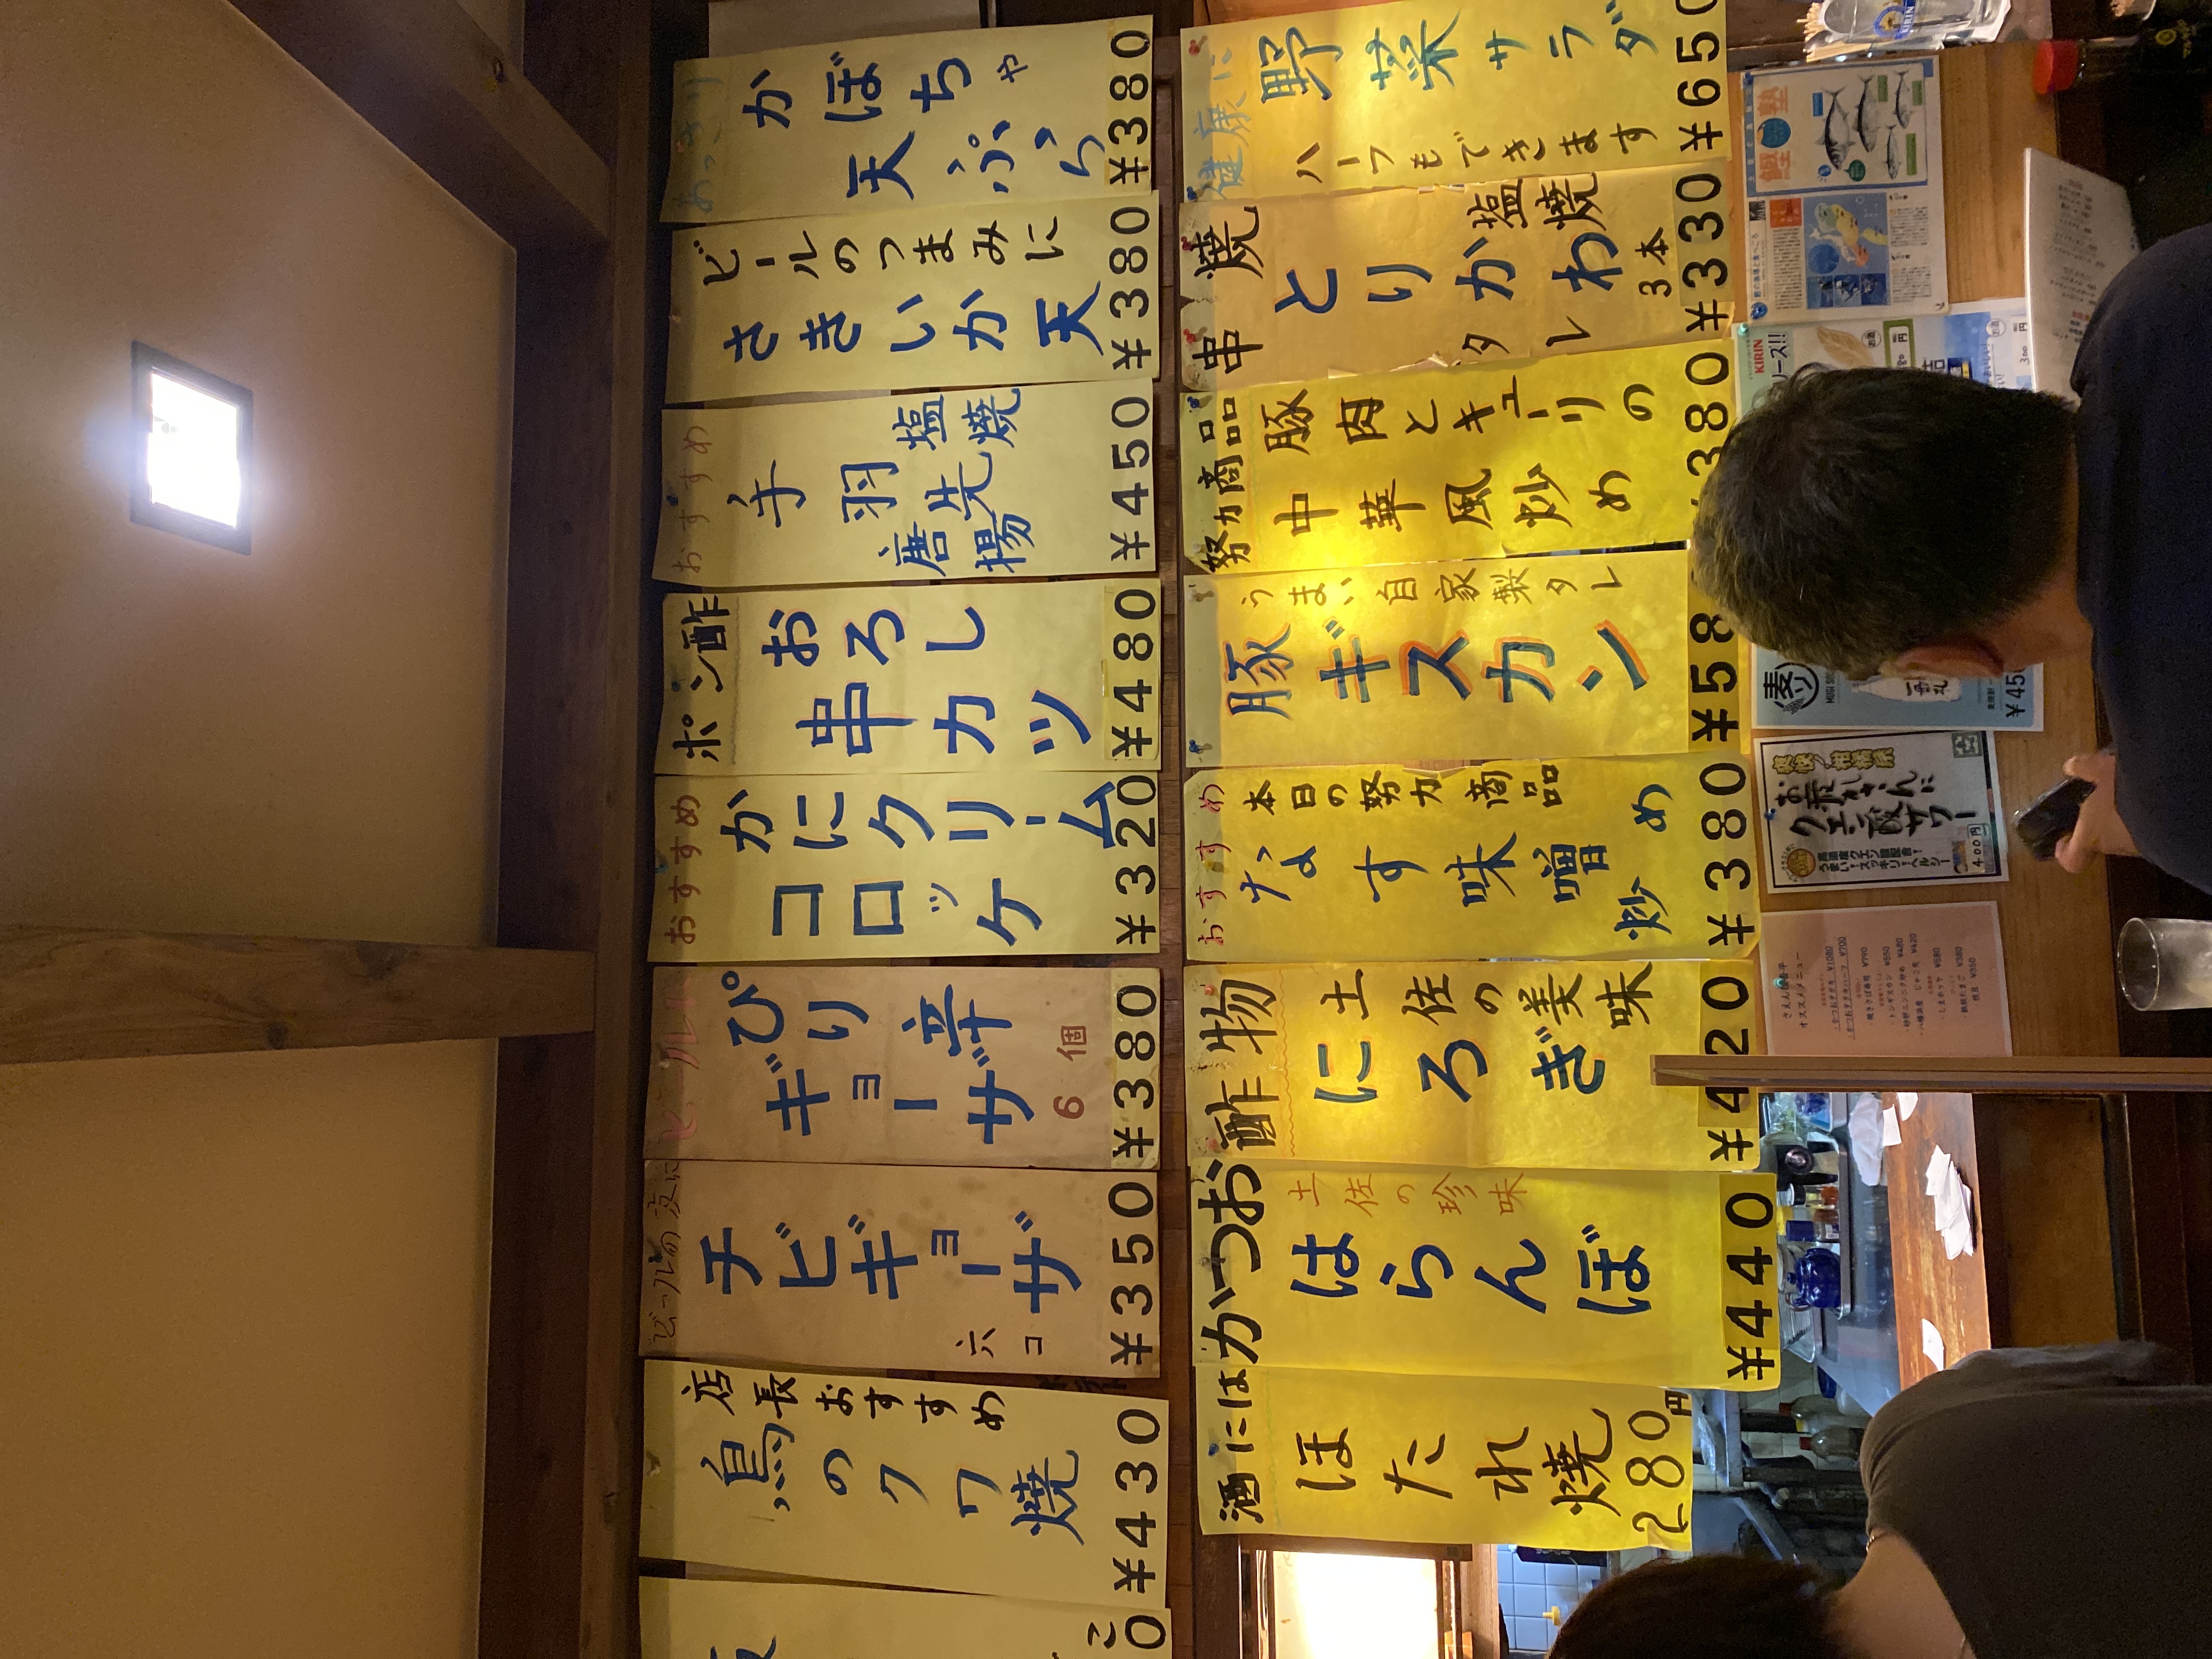 あっさり
かぼちゃ
天ぷら
¥380
ビールのつまみに
さきいか天
¥380
おすすめ
手羽先
塩焼
唐揚
¥450
ポン酢
おろし
串カツ
¥480
おすすめ
かにクリーム
コロッケ
¥320
ぴり辛
ギョーザ
6個
¥380
ビールの友に
チビギョーザ
六コ
¥350
店長おすすめ
鳥のクワ焼
¥430
健康に
野菜サラダ
ハーフもできます
¥650
串焼
とりかわ
塩焼
タレ
3本
¥330
努力商品
豚肉とキューリの
中華風炒め
380
うまい自家製タレ
豚ギスカン
¥58
おすすめ
本日の努力商品
なす味噌炒め
¥380
酢物
土佐の美味
にろぎ
¥420
かつお
土佐の珍味
はらんぼ
¥440
酒には
ほたれ焼
280円
KIRIN
お疲れさんに
クエン酸サワー
400円
オススメメニュー